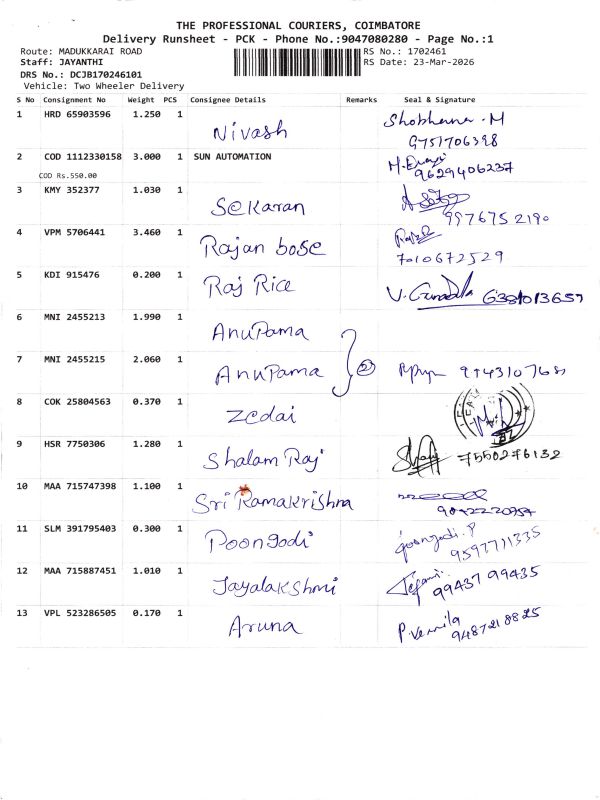 THE PROFESSIONAL COURIERS, COIMBATORE
Delivery Runsheet - PCK - Phone No.:9047080280 - Page No.:1
Route: MADUKKARAI ROAD RS No.: 1702461
Staff: JAYANTHI RS Date: 23-Mar-2026
DRS No.: DCJB170246101
Vehicle: Two Wheeler Delivery
S No Consignment No Weight PCS Consignee Details Remarks Seal & Signature
1 HRD 65903596 1.250 1 Nivash Shobhana.M
9751706398
2 COD 1112330158 3.000 1 SUN AUTOMATION
9629406237
COD Rs.550.00
3 KMY 352377 1.030 1 Sekaran
997675 2190
4 VPM 5706441 3.460 1 Rajan bose
7010672529
5 KDI 915476 0.200 1 Raj Rice
6 MNI 2455213 1.990 1 Anupama
7 MNI 2455215 2.060 1 Anupama 2
8 COK 25804563 0.370 1 Zedai
9 HSR 7750306 1.280 1 Shalam Raj 7550276132
10 MAA 715747398 1.100 1 Sri Ramakrishna
11 SLM 391795403 0.300 1 Poongodi Poongodi.P
9597711335
12 MAA 715887451 1.010 1 Jayalakshmi 99437 99435
13 VPL 523286505 0.170 1 Aruna P. Vennila
9487218825